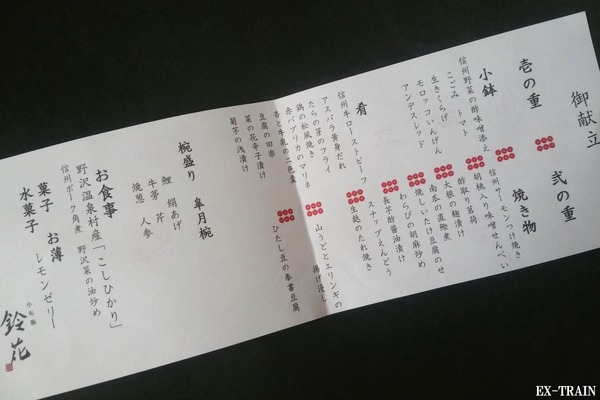 御献立
壱の重
小鉢
信州野菜の酢味噌添え
こごみ トマト
生きくらげ
モロッコいんげん
アンデスレッド
肴
信州牛ローストビーフ
アスパラ黄身だれ
たらの芽のフライ
鶏の松風焼き
赤パプリカのマリネ
杏と牛乳の二色羹
豆腐の田楽
菜の花辛子漬け
菊芋の浅漬け
弐の重
焼き物
信州サーモンつけ焼き
胡桃入り味噌せんべい
酢取り茗荷
大根の麹漬け
南瓜の直鰹煮
焼しいたけ豆腐のせ
わらびの胡麻炒め
スナップえんどう
長芋酢醤油漬け
生麩のたれ焼き
山うどとエリンギの
揚げ浸し
ひたし豆の奉書豆腐
椀盛り 皐月椀
鯉 絹あげ
牛蒡 芹
焼葱 人参
お食事
野沢温泉村産「こしひかり」
信州ポーク角煮 野沢菜の油炒め
菓子 お薄
水菓子 レモンゼリー
小布施
鈴花
EX-TRAIN